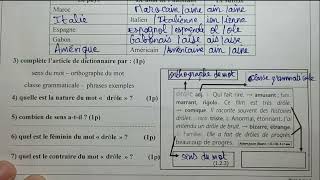 Maroc Marocain /aine ain /aine
Italie Italien /Italienne ien /ienne
Espagne Espagnol / espagnole ol /ole
Gabon Gabonais /aise ais /aise
Amérique Américain /Américaine ain /aine
3) complète l'article de dictionnaire par : (1p)
sens du mot – orthographe du mot
classe grammaticale – phrases exemples
4) quelle est la nature du mot « drôle » ? (1p)
5) combien de sens a-t-il ? (1p)
6) quel est le féminin du mot « drôle » ? (1p)
7) quel est le contraire du mot « drôle » ? (1p)
orthographe du mot
classe grammaticale
drôle adj. 1 Qui fait rire. → amusant ; fam.
marrant, rigolo. Ce film est très drôle.
→ comique. Il raconte souvent des histoires
drôles. 2 Anormal, étonnant. J'ai
entendu un drôle de bruit. → bizarre, étrange.
Familier. Elle a fait de drôles de progrès,
beaucoup de progrès.
sens du mot
(1.2.3)